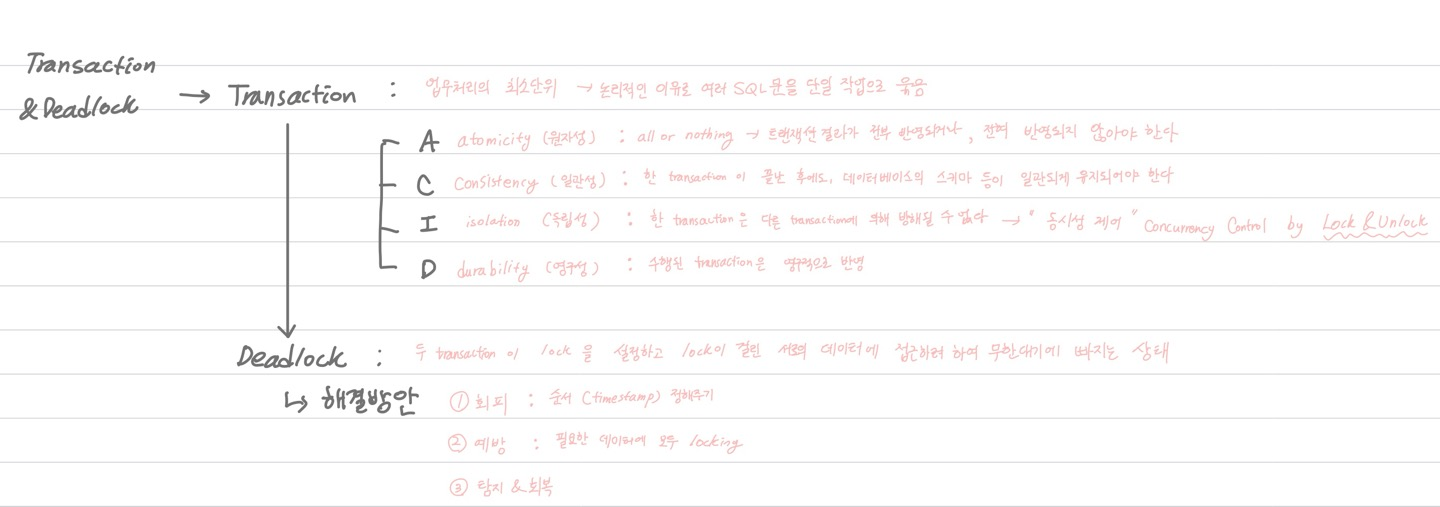 Transaction
& Deadlock → Transaction : 업무처리의 최소단위 → 논리적인 이유로 여러 SQL문을 단일 작업으로 묶음
A atomicity (원자성) : all or nothing → 트랜잭션 결과가 전부 반영되거나, 전혀 반영되지 않아야 한다
C Consistency (일관성) : 한 transaction이 끝난 후에도, 데이터베이스의 스키마 등이 일관되게 유지되어야 한다
I isolation (독립성) : 한 transaction은 다른 transaction에 의해 방해될 수 없다 → "동시성 제어" Concurrency Control by Lock & Unlock
D durability (영구성) : 수행된 transaction은 영구적으로 반영
Deadlock : 두 transaction이 lock을 설정하고 lock이 걸린 서로의 데이터에 접근하려 하여 무한대기에 빠지는 상태
↳ 해결방안 ① 회피 : 순서 (timestamp) 정해주기
② 예방 : 필요한 데이터에 모두 locking
③ 탐지 & 회복